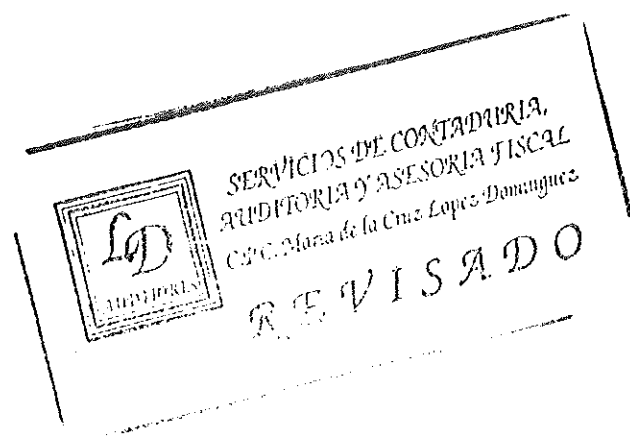 LD
AUDITORES
SERVICIOS DE CONTADURIA,
AUDITORIA Y ASESORIA FISCAL
C.P.C. Maria de la Cruz Lopez Dominguez
REVISADO